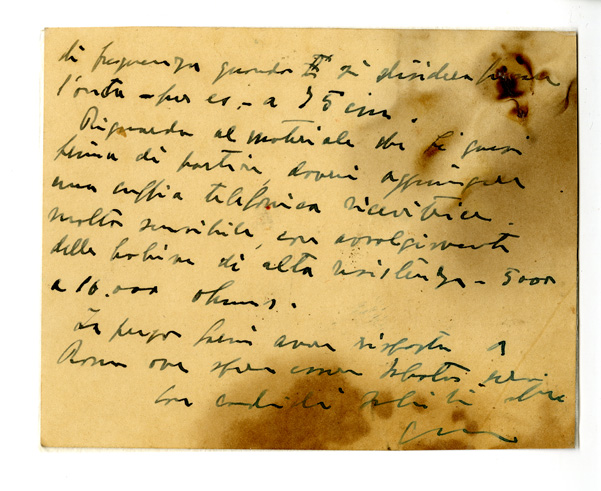 di frequenza quando si desidera
l'onda - per es. - a 35 cm.
Riguardo al materiale che
prima di partire, dovrei aggiungere
una cuffia telefonica ricevitrice
molto sensibile, con avvolgimenti
delle bobine di alta resistenza - 5000
a 10.000 ohms.
La prego farmi avere risposta a
Roma ove spero essere sabato
con cordiali saluti